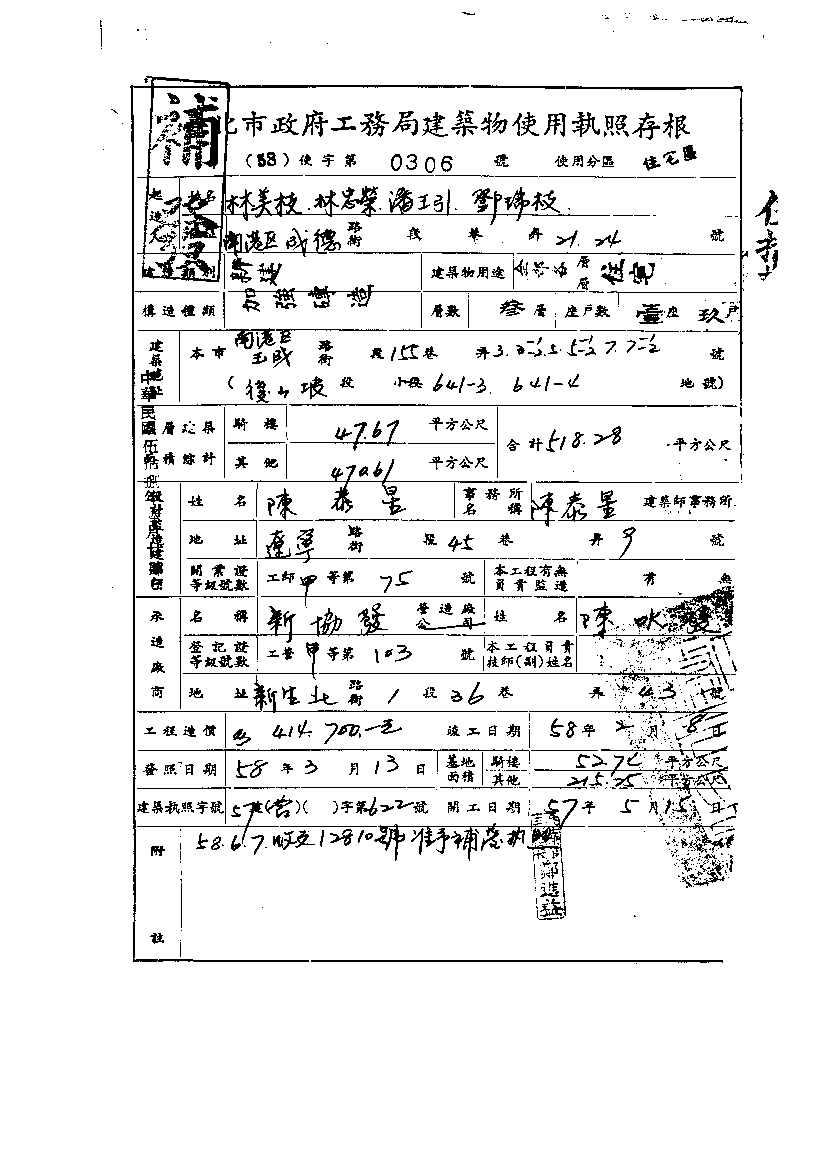 補
北市政府工務局建築物使用執照存根
(58)使字第 0306 號 使用分區 住宅區
林美枝、林忠榮 潘玉引、鄧瑞枝
南港區成德 路街 段 巷 弄 21.24 號
新建 建築物用途 層層 住宅
構造種類 加強磚造 層數 叁層 座戶數 壹座 玖戶
建築地址 本市 南港區玉成 路街 段155巷 弄3. 號
(後山坡段 小段 641-3. 641-4 地號)
騎樓 47.67 平方公尺 合計518.28 平方公尺
其他 470.61 平方公尺
中華民國伍拾捌年
姓名 陳泰星 事務所名稱 陳泰星 建築師事務所
地址 遼寧 路街 段45巷 弄9 號
開業證等級號數 工師甲等第 75 號 本工程有無負責監造 有 無
承造廠商 名稱 新協發 營造廠公司 姓名 陳
登記證等級號數 工營甲等第 103 號 本工程負責技師(副)姓名
地址 新生北 路街 1段36巷 弄43號
工程造價 414.700.- 竣工日期 58年2月8日
發照日期 58年3月13日 基地面積 騎樓 52.74 平方公尺
其他 215.25 平方公尺
建築執照字號 57建(營)( )字第622號 開工日期 57年5月15日
附註 58.6.7.收文12810號准予補發執照